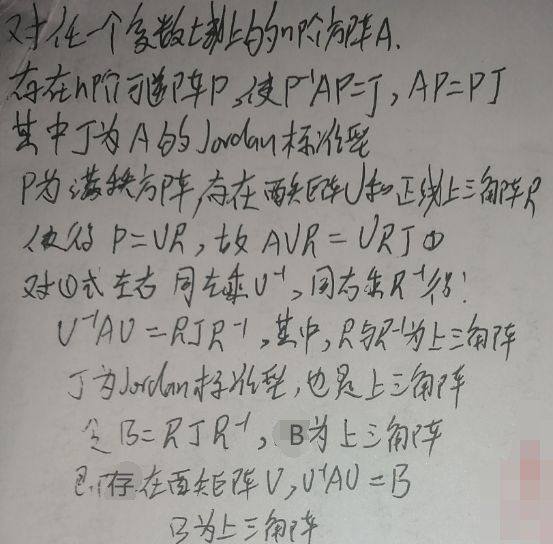 对任一个复数域上的n阶方阵A.
存在n阶可逆阵P,使P⁻¹AP=J, AP=PJ
其中J为A的Jordan标准型
P为满秩方阵,存在酉矩阵U和正线上三角阵R
使得 P=UR, 故 AUR = URJ ①
对①式左右同左乘U⁻¹,同右乘R⁻¹得:
U⁻¹AU=RJR⁻¹,其中,R与R⁻¹为上三角阵
J为Jordan标准型,也是上三角阵
令B=RJR⁻¹, B为上三角阵
即存在酉矩阵U,U⁻¹AU=B
B为上三角阵